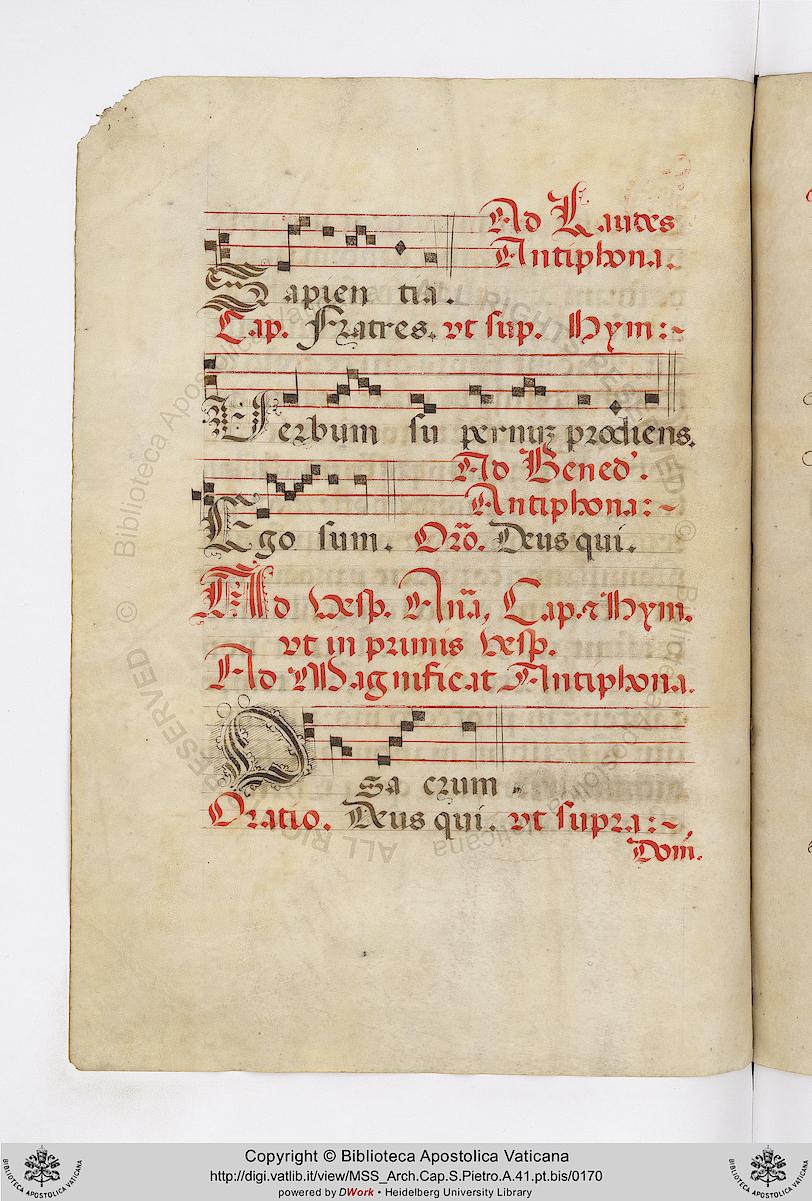 Ad Laudes
Antiphona.
Sapientia.
Cap. Fratres. vt sup. Hym:~
Verbum supernũ prodiens.
Ad Bened'.
Antiphona:~
Ego sum. Orõ. Deus qui.
Ad Vesp. Anã, Cap. & Hym.
vt in primis Vesp.
Ad Magnificat Antiphona.
O sacrum.
Oratio. Deus qui. vt supra:~,
Dom̃.
Copyright © Biblioteca Apostolica Vaticana
http://digi.vatlib.it/view/MSS_Arch.Cap.S.Pietro.A.41.pt.bis/0170
powered by DWork • Heidelberg University Library
© Biblioteca Apostolica Vaticana ALL RIGHTS RESERVED